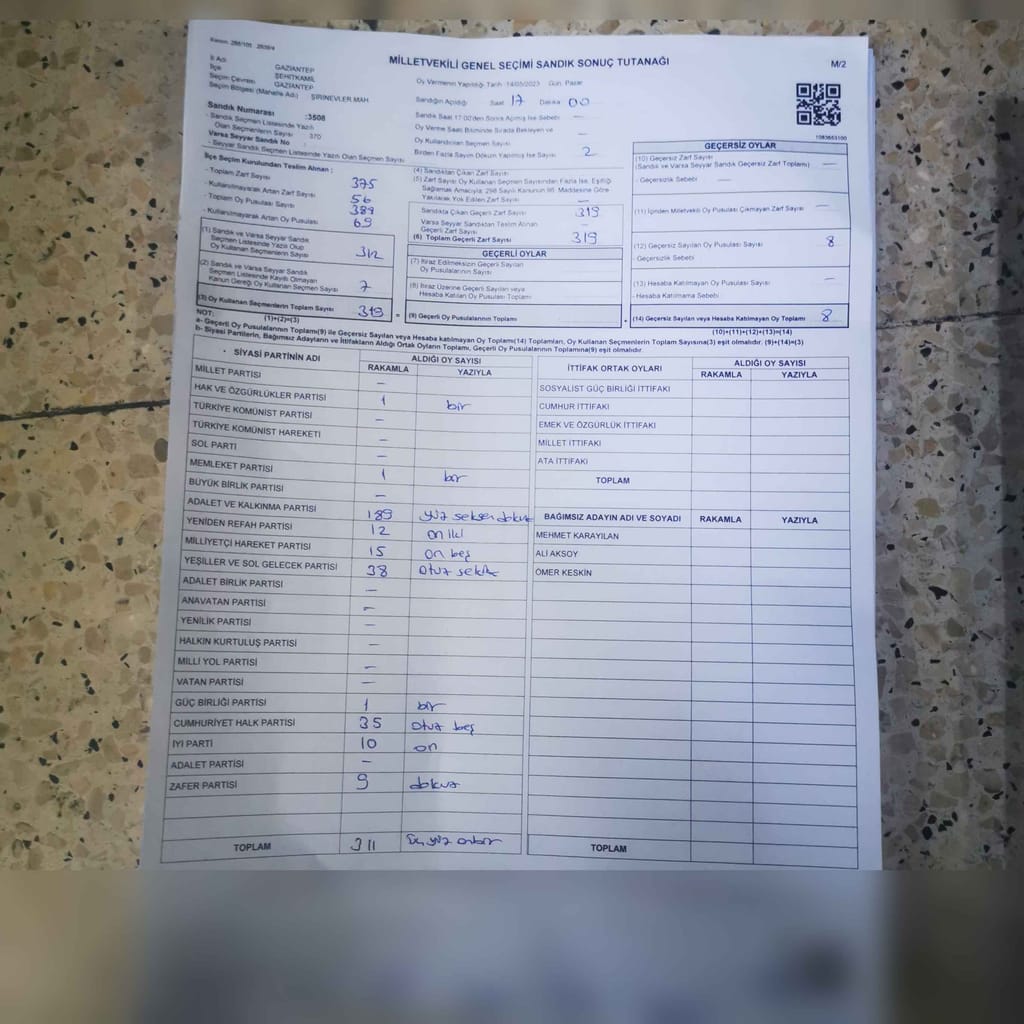 Kanun: 298/105 2839/4
MİLLETVEKİLİ GENEL SEÇİMİ SANDIK SONUÇ TUTANAĞI
M/2
İl Adı GAZİANTEP
İlçe ŞEHİTKAMİL
Seçim Çevresi GAZİANTEP
Seçim Bölgesi (Mahalle Adı) ŞİRİNEVLER MAH
Oy Vermenin Yapıldığı Tarih 14/05/2023 Gün, Pazar
Sandığın Açıldığı Saat 17 Dakika 00
Sandık Saat 17:00'den Sonra Açılmış İse Sebebi —
Oy Verme Saat Bitiminde Sırada Bekleyen ve
Oy Kullandırılan Seçmen Sayısı —
Birden Fazla Sayım Döküm Yapılmış İse Sayısı 2
Sandık Numarası :3508
- Sandık Seçmen Listesinde Yazılı
Olan Seçmenlerin Sayısı 370
Varsa Seyyar Sandık No
- Seyyar Sandık Seçmen Listesinde Yazılı Olan Seçmen Sayısı
1083653100
İlçe Seçim Kurulundan Teslim Alınan :
- Toplam Zarf Sayısı 375
- Kullanılmayarak Artan Zarf Sayısı 56
- Toplam Oy Pusulası Sayısı 389
- Kullanılmayarak Artan Oy Pusulası 69
(1) Sandık ve Varsa Seyyar Sandık
Seçmen Listesinde Yazılı Olup
Oy Kullanan Seçmenlerin Sayısı 312
(2) Sandık ve Varsa Seyyar Sandık
Seçmen Listesinde Kayıtlı Olmayan
Kanun Gereği Oy Kullanan Seçmen Sayısı 7
(3) Oy Kullanan Seçmenlerin Toplam Sayısı 319
(1)+(2)=(3)
(4) Sandıktan Çıkan Zarf Sayısı
(5) Zarf Sayısı Oy Kullanan Seçmen Sayısından Fazla İse, Eşitliği
Sağlamak Amacıyla; 298 Sayılı Kanunun 98. Maddesine Göre
Yakılarak Yok Edilen Zarf Sayısı —
Sandıkta Çıkan Geçerli Zarf Sayısı 319
Varsa Seyyar Sandıktan Teslim Alınan
Geçerli Zarf Sayısı —
(6) Toplam Geçerli Zarf Sayısı 319
GEÇERLİ OYLAR
(7) İtiraz Edilmeksizin Geçerli Sayılan
Oy Pusulalarının Sayısı
(8) İtiraz Üzerine Geçerli Sayılan veya
Hesaba Katılan Oy Pusulası Toplamı
(9) Geçerli Oy Pusulalarının Toplamı
GEÇERSİZ OYLAR
(10) Geçersiz Zarf Sayısı
(Sandık ve Varsa Seyyar Sandık Geçersiz Zarf Toplamı) —
- Geçersizlik Sebebi —
(11) İçinden Milletvekili Oy Pusulası Çıkmayan Zarf Sayısı —
(12) Geçersiz Sayılan Oy Pusulası Sayısı 8
- Geçersizlik Sebebi
(13) Hesaba Katılmayan Oy Pusulası Sayısı —
- Hesaba Katılmama Sebebi
(14) Geçersiz Sayılan veya Hesaba Katılmayan Oy Toplamı 8
(10)+(11)+(12)+(13)=(14)
NOT:
a- Geçerli Oy Pusulalarının Toplamı(9) ile Geçersiz Sayılan veya Hesaba katılmayan Oy Toplamı(14) Toplamları, Oy Kullanan Seçmenlerin Toplam Sayısına(3) eşit olmalıdır. (9)+(14)=(3)
b- Siyasi Partilerin, Bağımsız Adayların ve İttifakların Aldığı Ortak Oyların Toplamı, Geçerli Oy Pusulalarının Toplamına(9) eşit olmalıdır.
SİYASİ PARTİNİN ADI ALDIĞI OY SAYISI
RAKAMLA YAZIYLA
MİLLET PARTİSİ —
HAK VE ÖZGÜRLÜKLER PARTİSİ 1 bir
TÜRKİYE KOMÜNİST PARTİSİ —
TÜRKİYE KOMÜNİST HAREKETİ —
SOL PARTİ —
MEMLEKET PARTİSİ 1 bir
BÜYÜK BİRLİK PARTİSİ —
ADALET VE KALKINMA PARTİSİ 189 yüz seksen dokuz
YENİDEN REFAH PARTİSİ 12 on iki
MİLLİYETÇİ HAREKET PARTİSİ 15 on beş
YEŞİLLER VE SOL GELECEK PARTİSİ 38 otuz sekiz
ADALET BİRLİK PARTİSİ —
ANAVATAN PARTİSİ —
YENİLİK PARTİSİ —
HALKIN KURTULUŞ PARTİSİ —
MİLLİ YOL PARTİSİ —
VATAN PARTİSİ —
GÜÇ BİRLİĞİ PARTİSİ 1 bir
CUMHURİYET HALK PARTİSİ 35 otuz beş
İYİ PARTİ 10 on
ADALET PARTİSİ —
ZAFER PARTİSİ 9 dokuz
TOPLAM 311 üç yüz onbir
İTTİFAK ORTAK OYLARI ALDIĞI OY SAYISI
RAKAMLA YAZIYLA
SOSYALİST GÜÇ BİRLİĞİ İTTİFAKI
CUMHUR İTTİFAKI
EMEK VE ÖZGÜRLÜK İTTİFAKI
MİLLET İTTİFAKI
ATA İTTİFAKI
TOPLAM
BAĞIMSIZ ADAYIN ADI VE SOYADI RAKAMLA YAZIYLA
MEHMET KARAYILAN
ALİ AKSOY
ÖMER KESKİN
TOPLAM